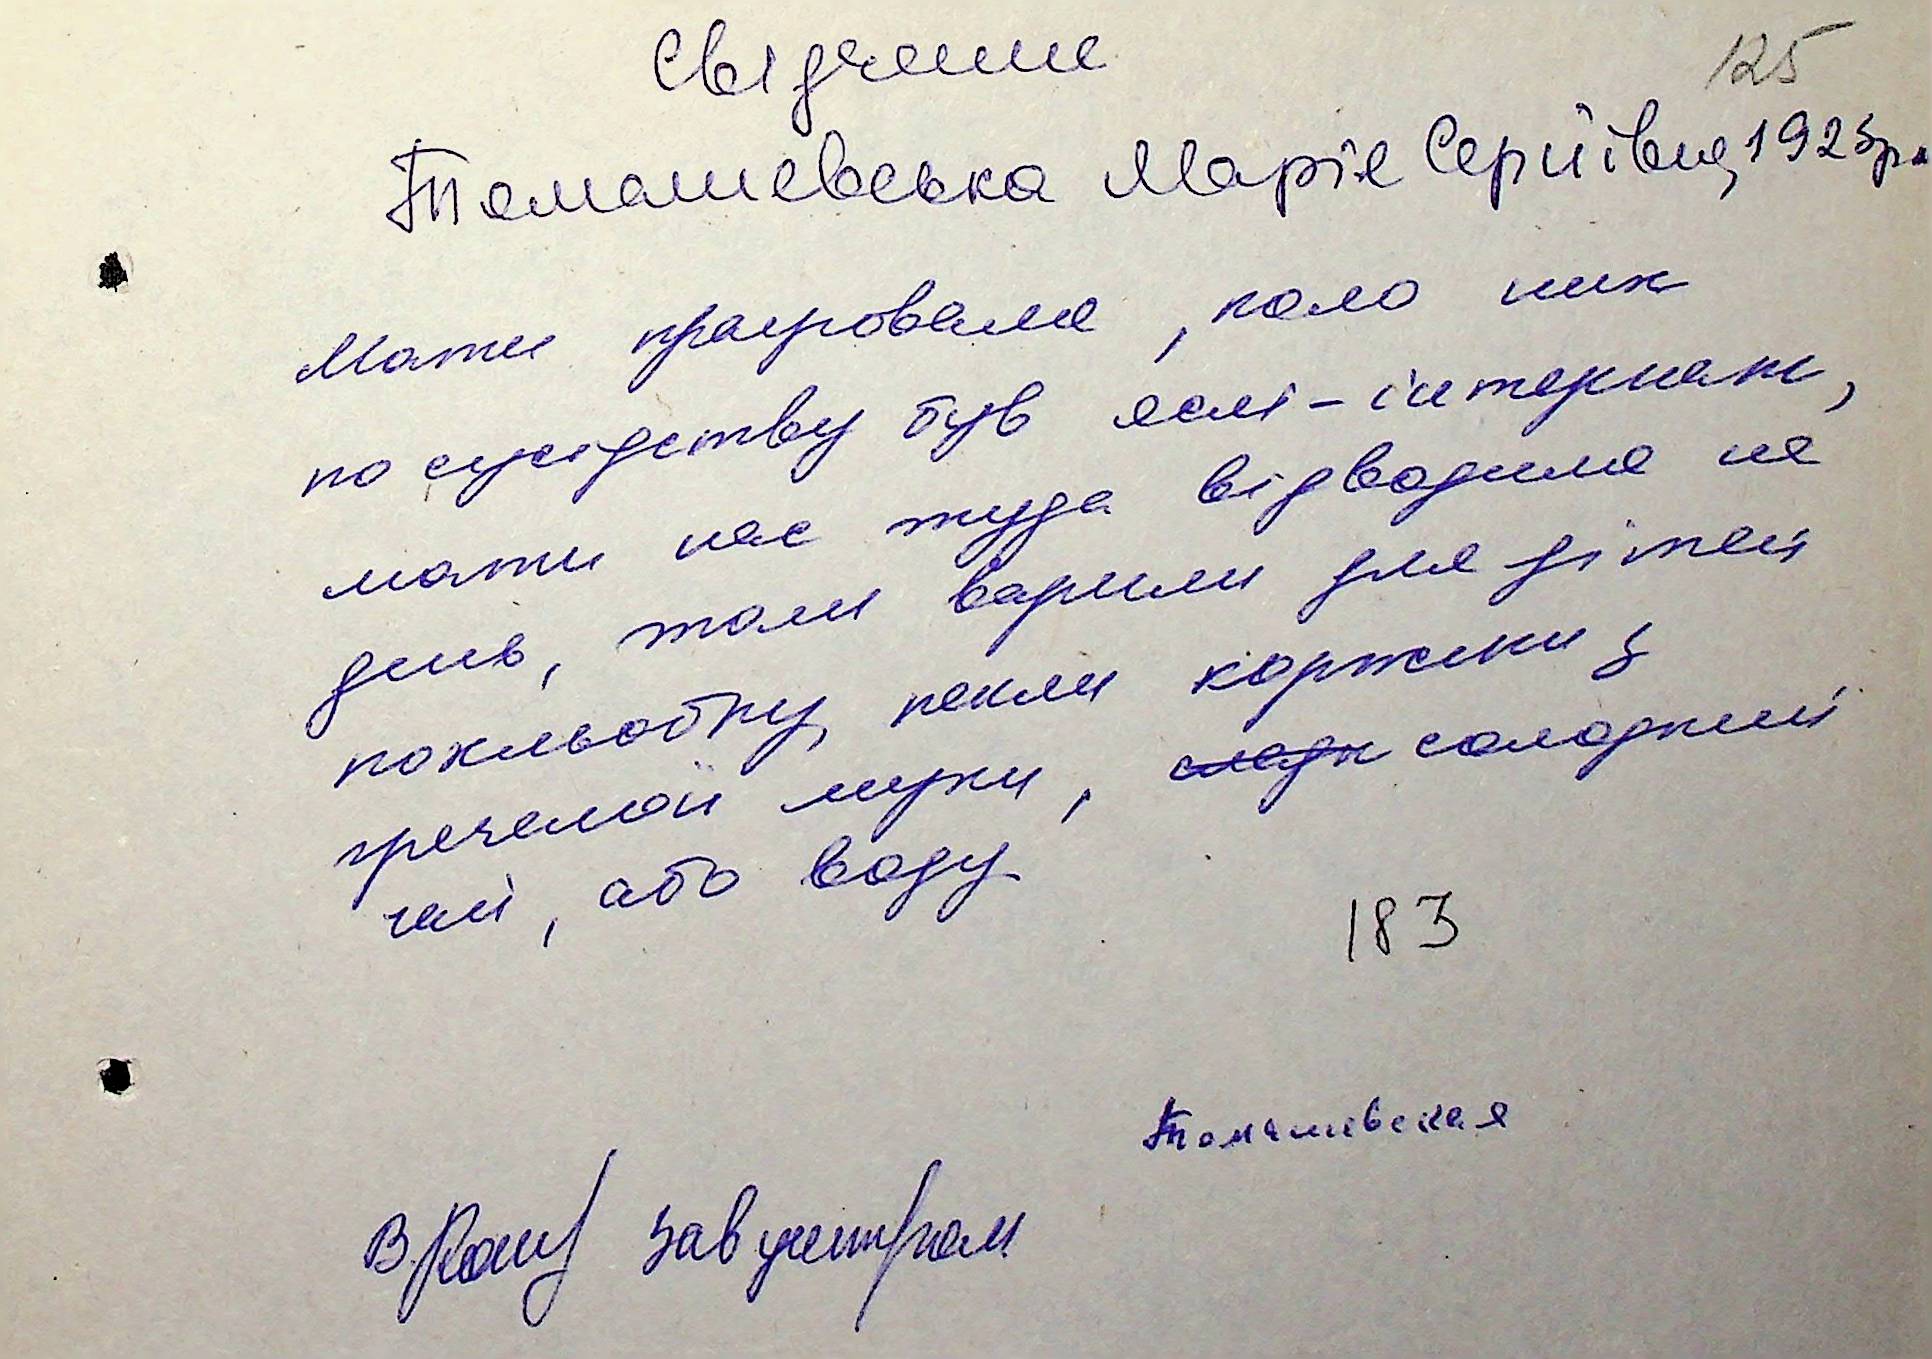 125
Свідчение
Томашевська Марія Сергіївна, 1925р.
Мати працювала, коло них
по сусідству був яслі-інтернат,
мати нас туда відводила на
день, там варили для дітей
похльобку, пекли коржики з
гречаной муки, солодкий
чай, або воду
183
Томашевская
В. завцентром